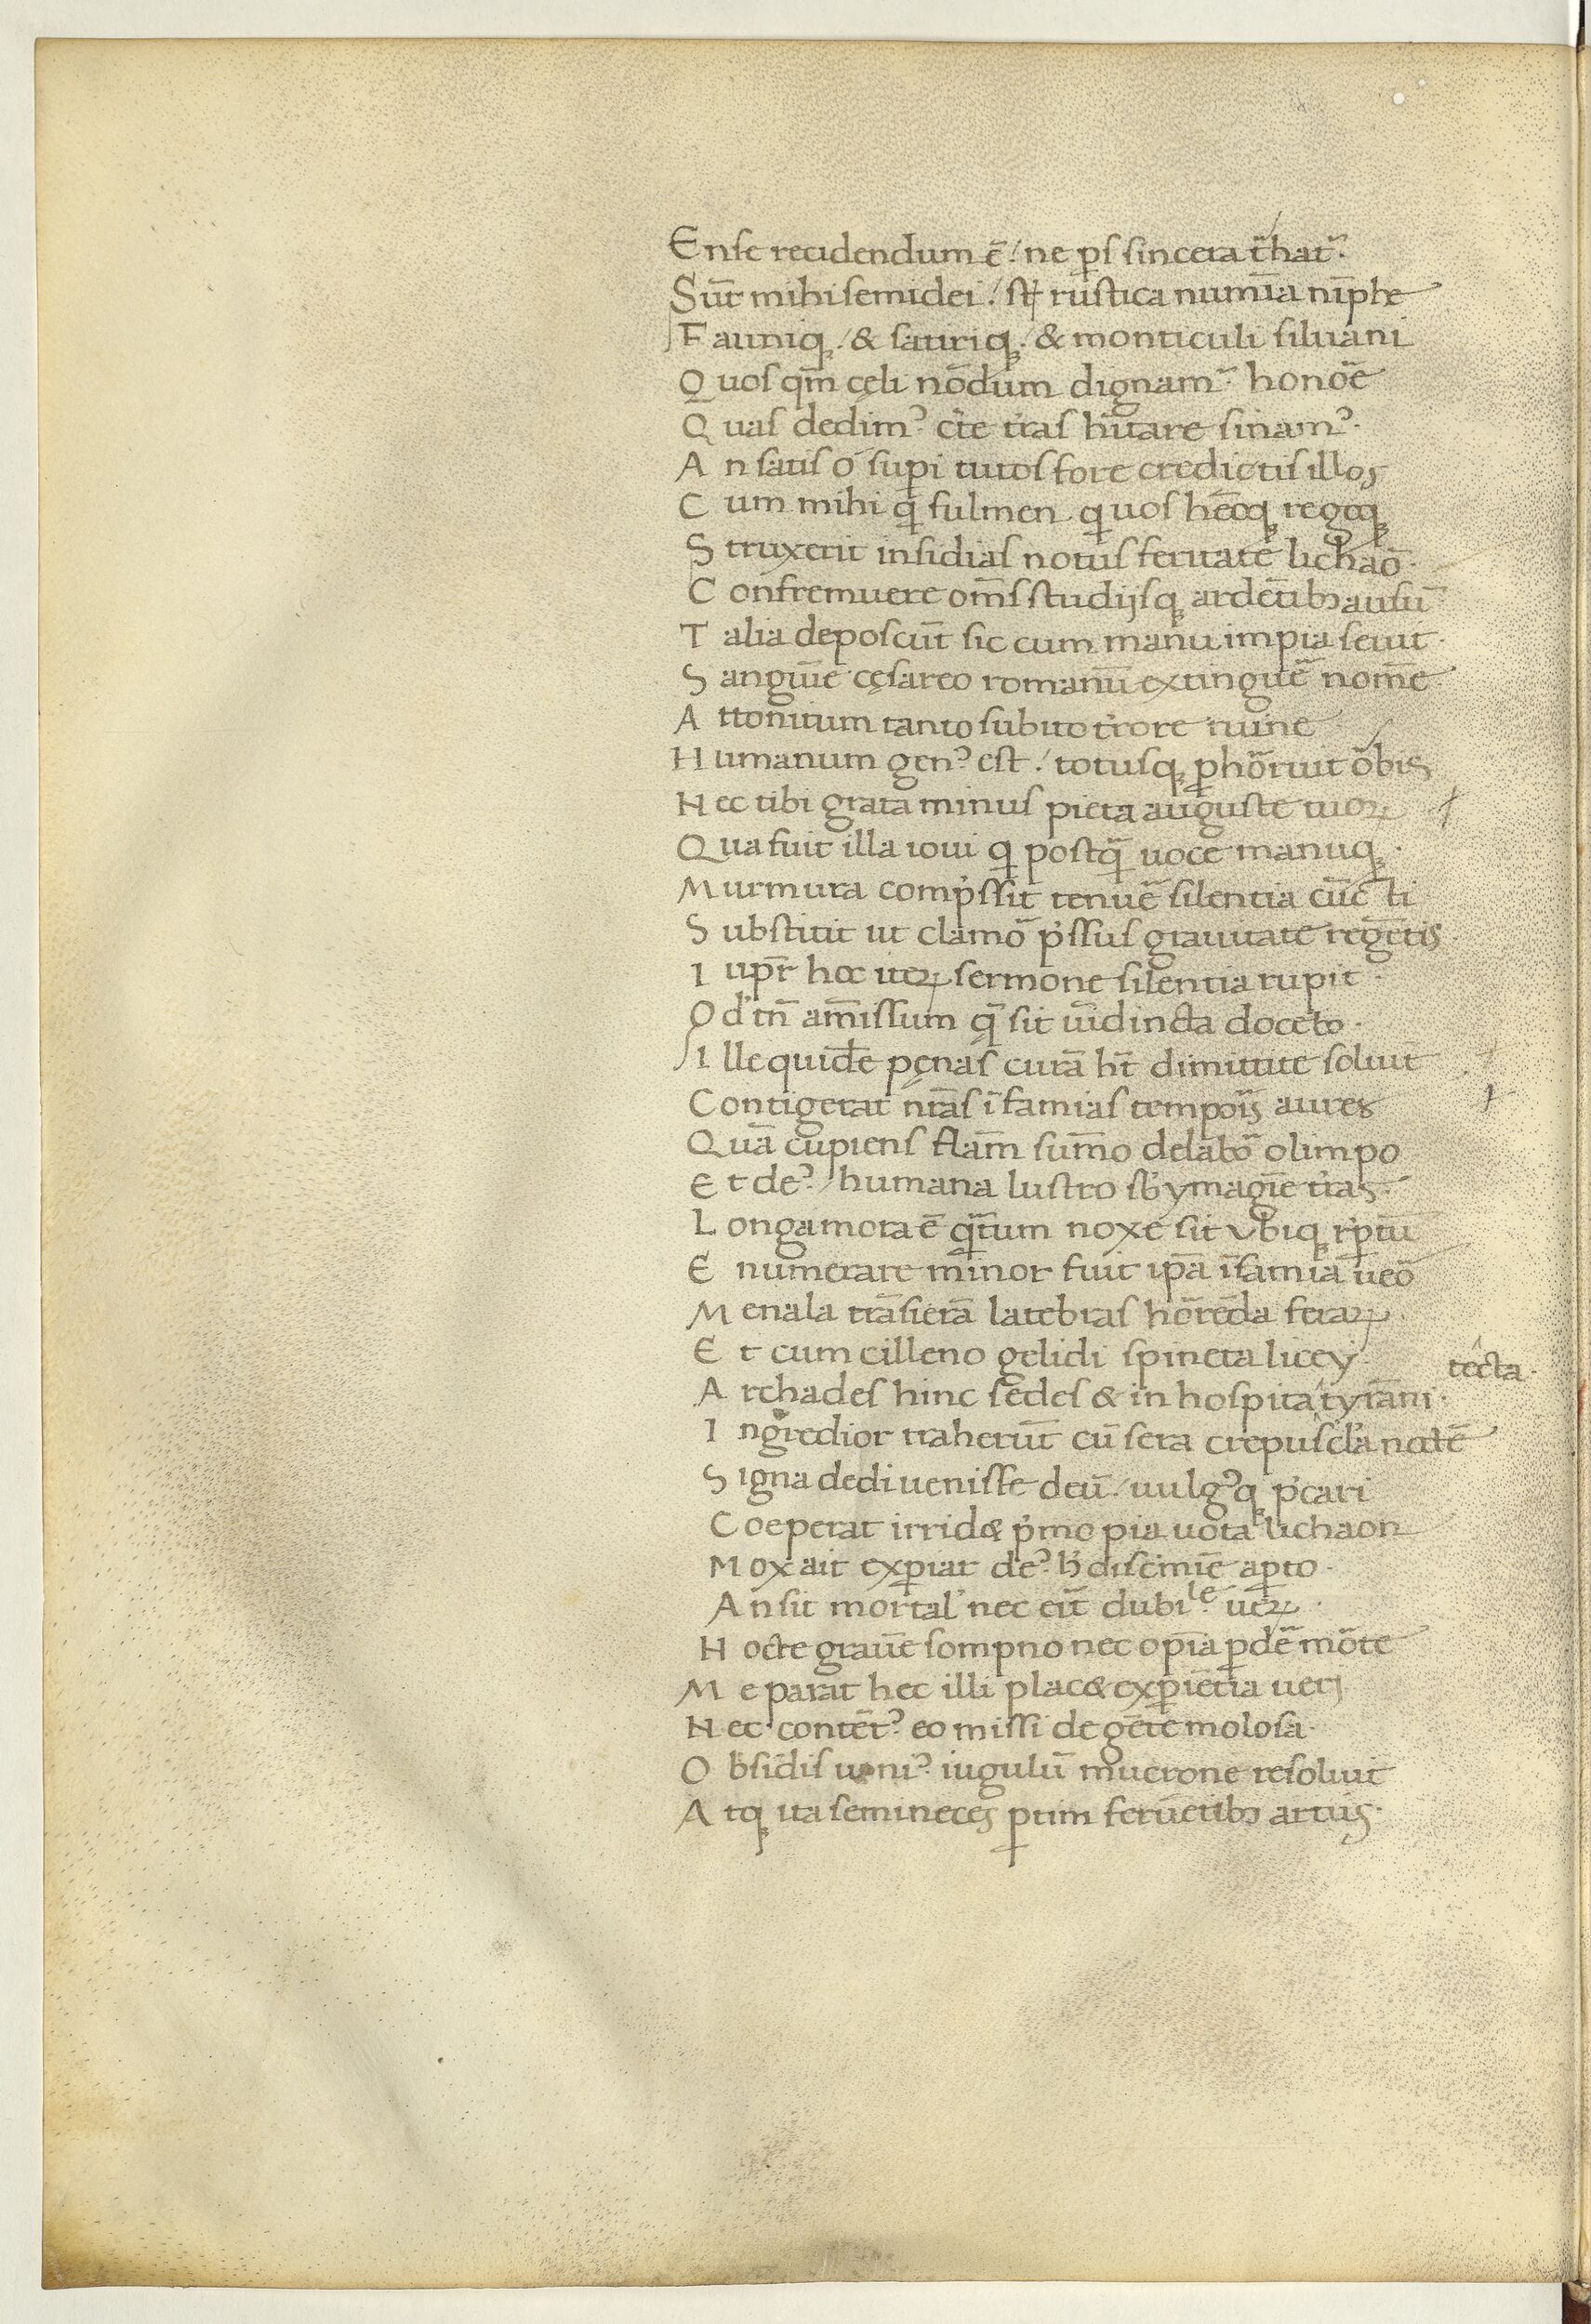 Ense recidendum ē / ne ꝑs sincera tͣhatᷣ.
Sūt mihi semidei / sꝉt rustica numīa nīphe
Fauniqꝫ / & satiriqꝫ / & monticuli siluani
Quos qm̄ cęli nōdum dignamᷣ honōe
Quas dedim᾿ cͤte tͥras hītare sinam᾿.
An satis o suꝑi tutos fore credictis illos
Cum mihi q̄ fulmen quos hēoqꝫ regoqꝫ
Struxerit insidias notus feritate lichaō.
Confremuere om̄s studijsqꝫ ardētibꝫ ausū
Talia deposcūt sic cum manu impia seuit.
Sanguīe cęsareo romanū extinguē nom̄e
Attonitum tanto subito t᾿rore ruine
Humanum gen᾿ est / totusqꝫ ꝑhōruit ōbis
Nec tibi grata minus pieta auguste tuoꝝ
Qua fuit illa ioui q̄ postq̄ uoce manuqꝫ.
Murmura comp᾿ssit tenuē silentia cūcti
Substitit ut clamō p᾿ssus grauitate regētis
Iupr̄ hoc iteꝝ sermone silentia rupit.
Qd᾿ tn̄ am̄issum q̄ sit uīdincta docebo.
Ille quidē pęnas curā hn̄t dimittite soluit
Contigerat nr̄as īfamias tempoīs aures
Quā cupiens flām sum̄o delabō olimpo
Et de᾿ / humana lustro sb᾿ ymagīe t᾿ras.
Longa mora ē qͣtum noxe sit vbiqꝫ rꝑtū
Enumerare mīnor fuit ip̄a īfamia ueō
Menala trāsierā latebras hōrēda feraꝝ.
Et cum cilleno gelidi spineta licey
tecta.
Archades hinc sedes & in hospita tyrāni.
Ingredior traherūt cū sera crepuscl᾿a noctē
Signa dedi uenisse deū / uulg᾿qꝫ p᾿cari
Coeperat irrid& p᾿mo pia uota lichaon
Mox ait exꝑiar de᾿ h᾿ discᷣimīe aꝑto.
An sit mortal᾿ nec eīt dubile ueꝝ.
Nocte grauē sompno nec opīa ꝑdē mōte
Me parat hec illi plac& exꝑiētia ueri
Nec contēt᾿ eo missi de gēte molosa.
Obsidis uni᾿ iugulū mucrone resoluit
Atqꝫ ita semineces ꝑtim feruētibꝫ artus.